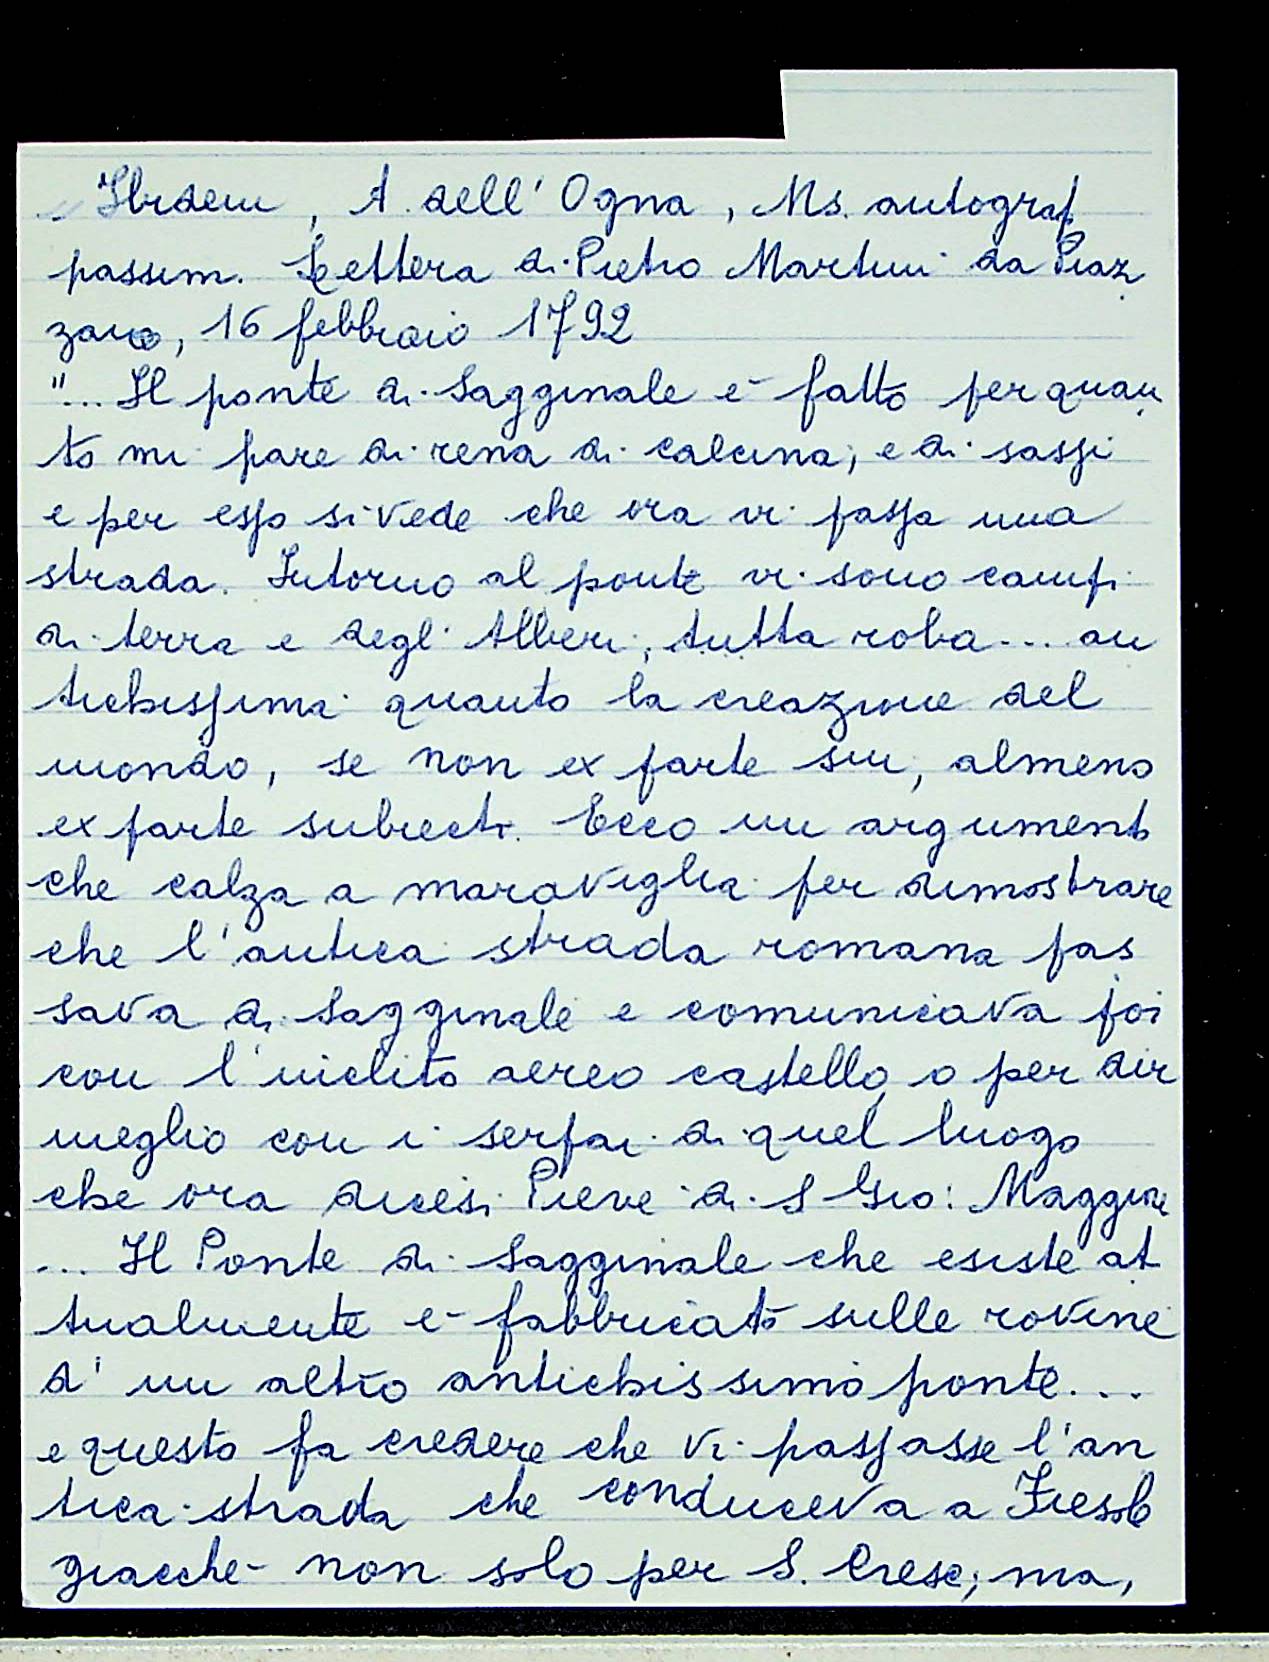 Ibidem, A. dell' Ogna, Ms. autograf.
passim. Lettera di Pietro Martini da Piaz
zano, 16 febbraio 1792
"... Il ponte di Sagginale è fatto per quan
to mi pare di rena di calcina, e di sassi
e per esso si vede che ora vi passa una
strada. Intorno al ponte vi sono campi
di terra e degl' Alberi, tutta roba... an
tichissima quanto la creazione del
mondo, se non ex parte sui, almeno
ex parte subiecti. Ecco un argument
che calza a maraviglia per dimostrare
che l'antica strada romana pas
sava di Sagginale e comunicava poi
con l'inclito aereo castello, o per dir
meglio con i serpai di quel luogo
che ora dicesi Pieve di S Gio: Maggiore
... Il Ponte di Sagginale che esiste at
tualmente è fabbricato sulle rovine
d' un altro antichissimo ponte...
e questo fa credere che vi passasse l'an
tica strada che conduceva a Fiesole
giacchè non solo per S. Cresci, ma,